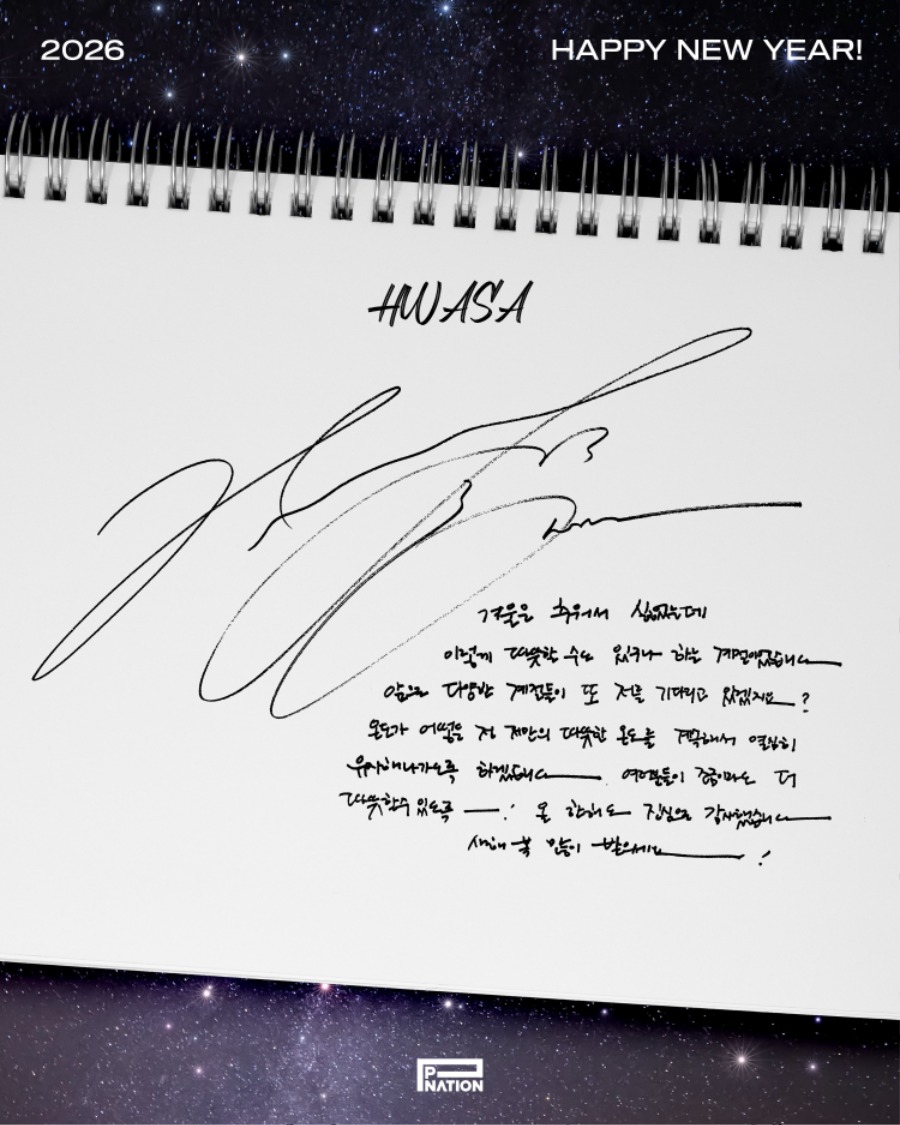 2026
HAPPY NEW YEAR!
HWASA
겨울은 추워서 싫었는데
이렇게 따뜻할 수도 있구나 하는 계절이었습니다
앞으로 다양한 계절들이 또 저를 기다리고 있겠지요?
온도가 어떻든 전 저만의 따뜻한 온도를 계속해서 열심히
유지해나가도록 하겠습니다 여러분들이 조금이라도 더
따뜻할 수 있도록! 올 한해도 진심으로 감사했습니다
새해 복 많이 받으세요!
P NATION